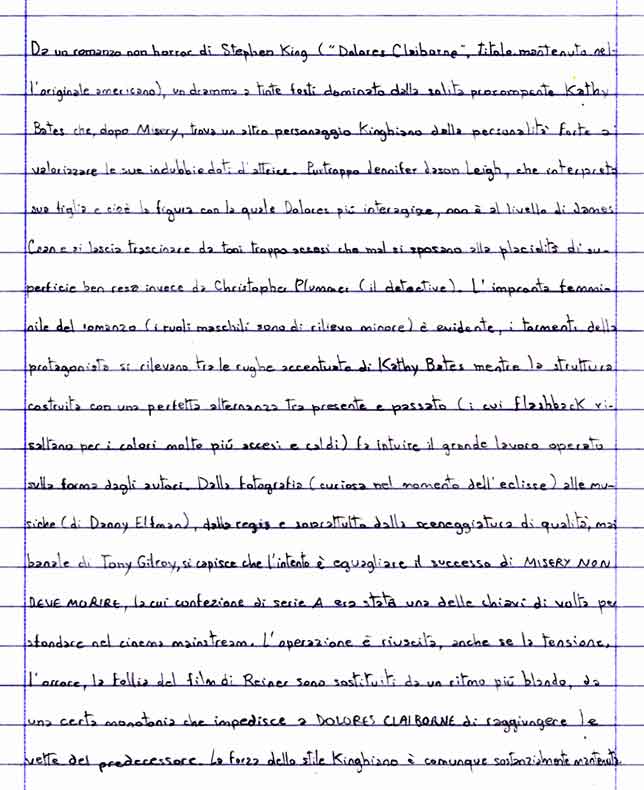 Da un romanzo non horror di Stephen King ("Dolores Claiborne", titolo mantenuto nel-
l'originale americano), un dramma a tinte forti dominato dalla solita procompente Kathy
Bates che, dopo Misery, trova un altro personaggio Kinghiano dalla personalità forte a
valorizzare le sue indubbie doti d'attrice. Purtroppo Jennifer Jason Leigh, che interpreta
sua figlia e cioè la figura con la quale Dolores più interagisce, non è al livello di James
Caan e si lascia trascinare da toni troppo accesi che mal si sposano alla placidità di su-
perficie ben resa invece da Christopher Plummer (il detective). L'impronta femmi-
nile del romanzo (i ruoli maschili sono di rilievo minore) è evidente, i tormenti della
protagonista si rilevano tra le rughe accentuate di Kathy Bates mentre la struttura
costruita con una perfetta alternanza tra presente e passato (i cui flashback ri-
saltano per i colori molto più accesi e caldi) fa intuire il grande lavoro operato
sulla forma dagli autori. Dalla fotografia (curiosa nel momento dell'eclisse) alle mu-
siche (di Danny Elfman), dalla regia e soprattutto dalla sceneggiatura di qualità, mai
banale di Tony Gilroy, si capisce che l'intento è eguagliare il successo di MISERY NON
DEVE MORIRE, la cui confezione di serie A era stata una delle chiavi di volta per
sfondare nel cinema mainstream. L'operazione è riuscita, anche se la tensione,
l'orrore, la follia del film di Reiner sono sostituiti da un ritmo più blando, da
una certa monotonia che impedisce a DOLORES CLAIBORNE di raggiungere le
vette del predecessore. La forza dello stile Kinghiano è comunque sostanzialmente mantenuta.